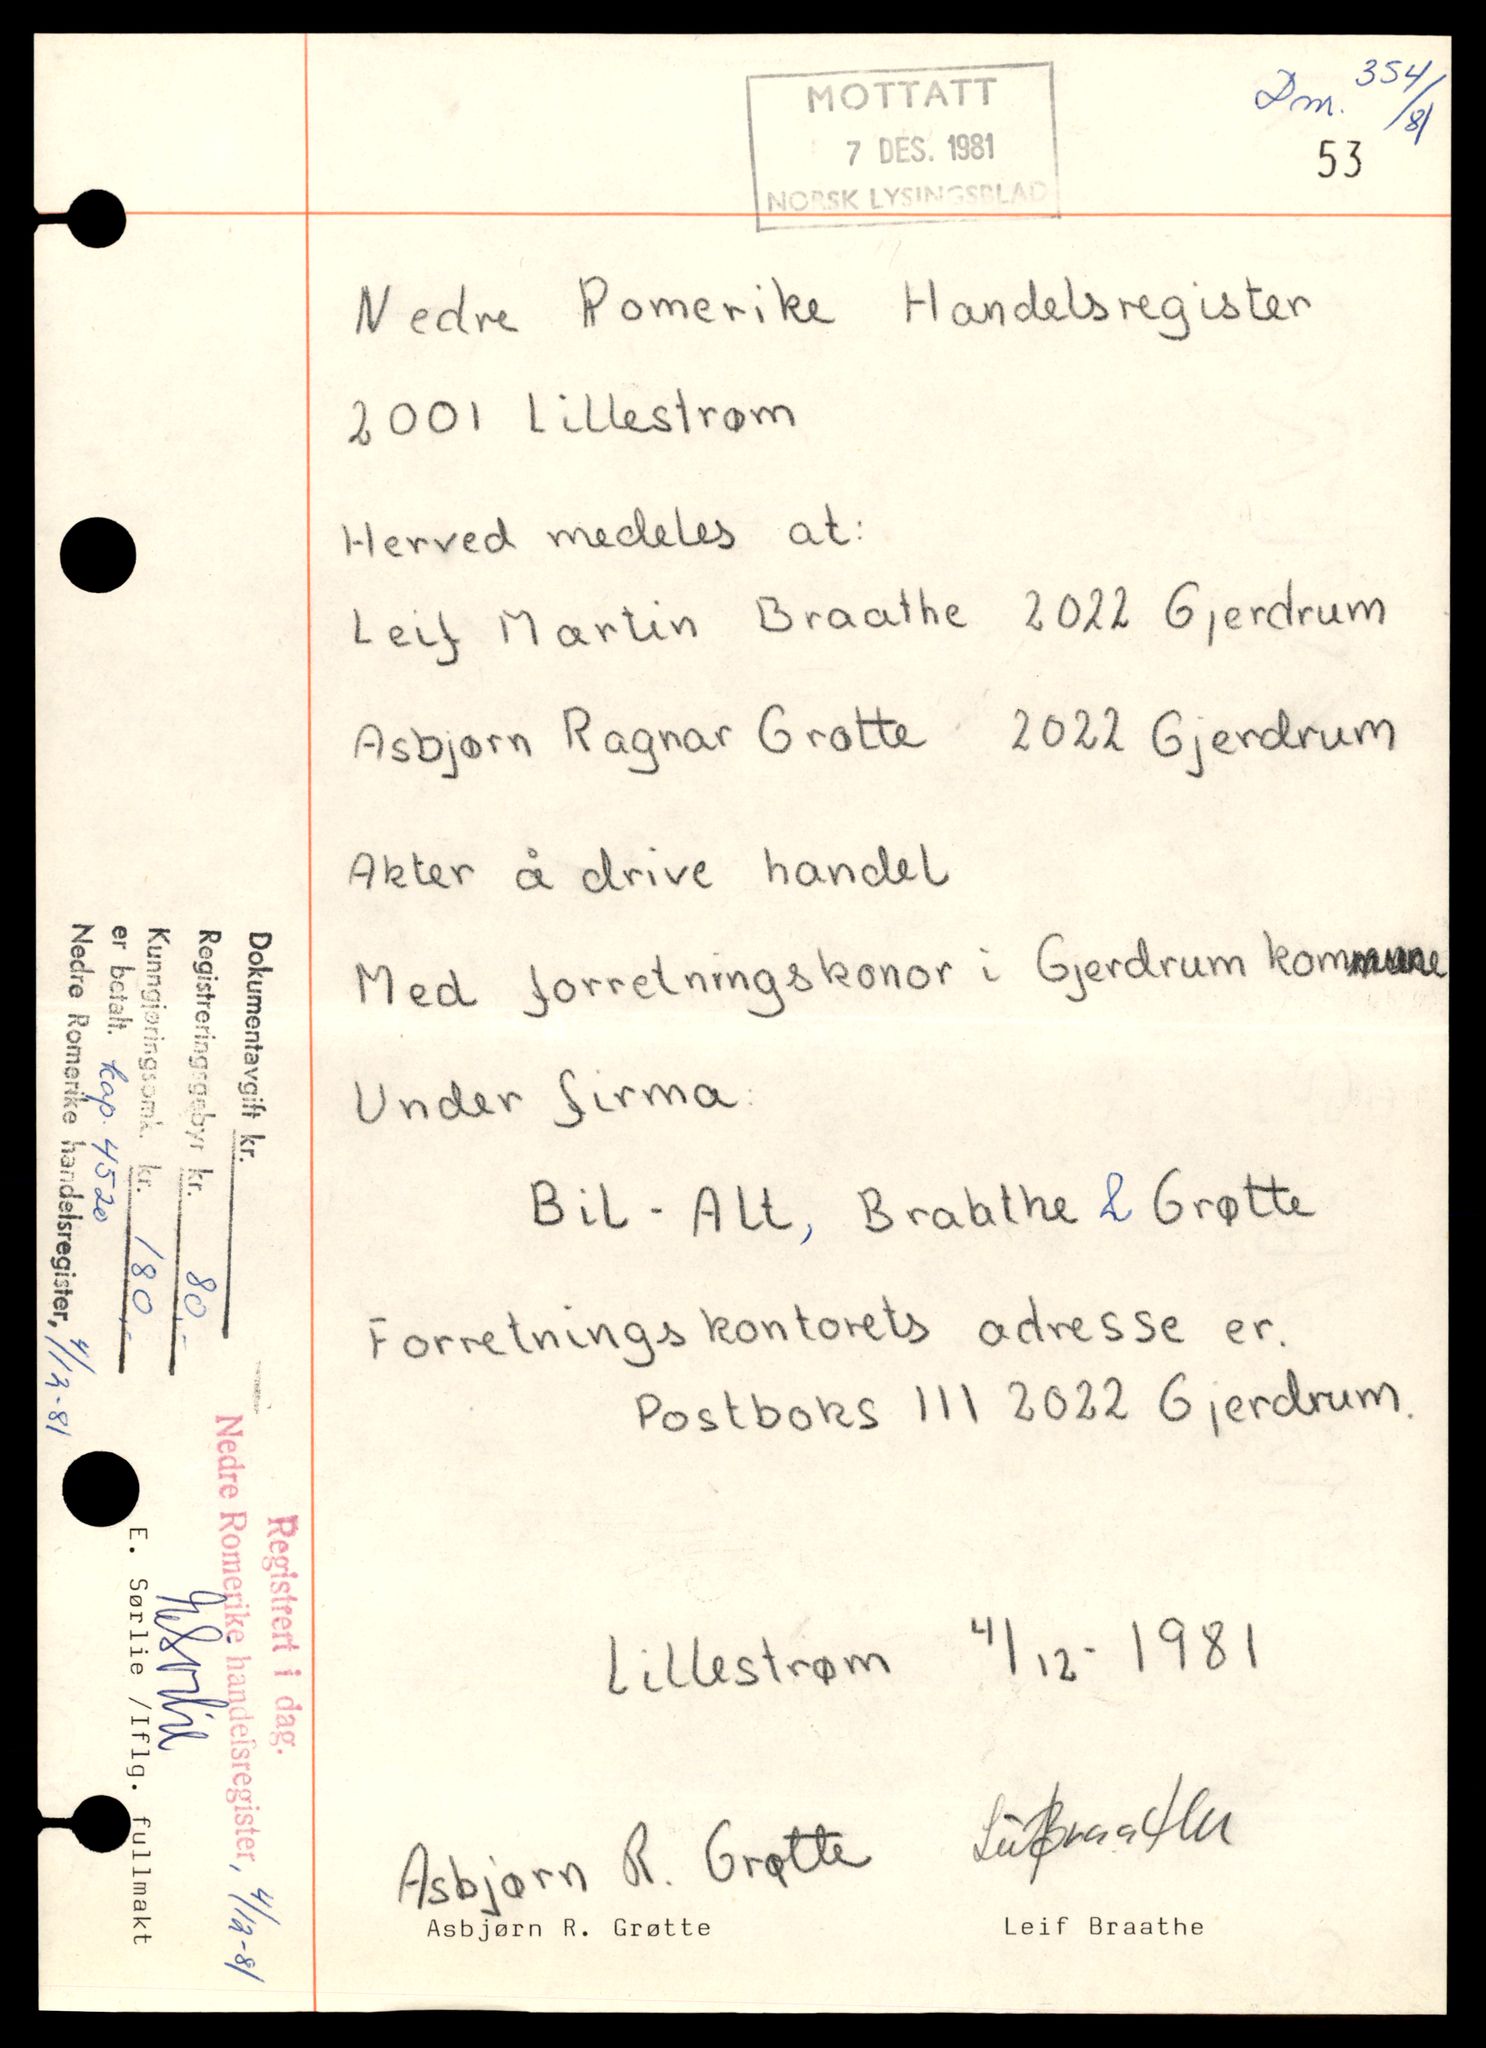 Dm. 354/81
MOTTATT
7 DES. 1981
NORSK LYSINGSBLAD
53
Nedre Romerike Handelsregister
2001 Lillestrøm
Herved medeles at:
Leif Martin Braathe 2022 Gjerdrum
Asbjørn Ragnar Grøtte 2022 Gjerdrum
Akter å drive handel
Med forretningskonor i Gjerdrum kommune
Under firma:
Bil - Alt, Braathe & Grøtte
Forretningskontorets adresse er.
Postboks 111 2022 Gjerdrum.
Lillestrøm 4/12 - 1981
Asbjørn R. Grøtte
Leif Braathe
Asbjørn R. Grøtte
Leif Braathe
Dokumentavgift kr.
Registreringsgebyr kr. 80,-
Kunngjøringsomk. kr. 180,-
er betalt. kap. 4520
Nedre Romerike handelsregister, 4/12-81
Registrert i dag.
Nedre Romerike handelsregister, 4/12-81
E. Sørlie /Iflg. fullmakt